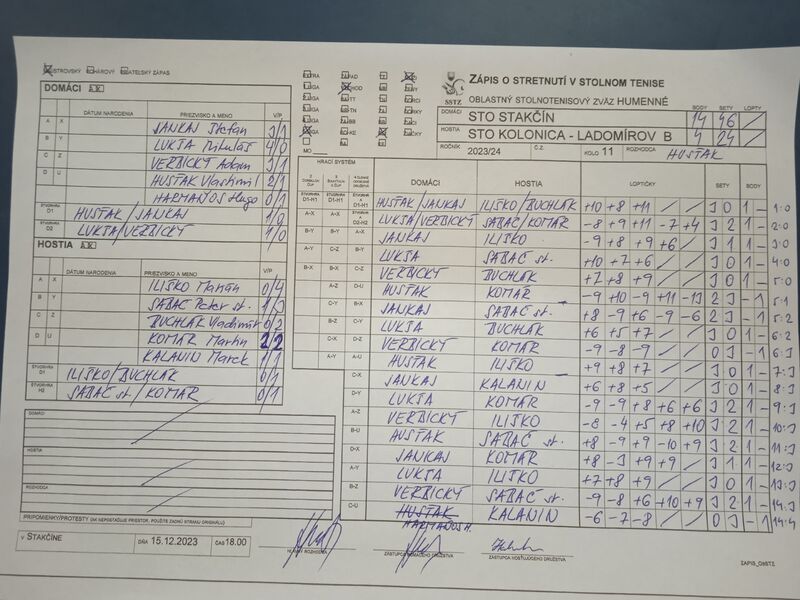 ZÁPIS O STRETNUTÍ V STOLNOM TENISE
OBLASTNÝ STOLNOTENISOVÝ ZVÄZ HUMENNÉ
SSTZ
BODY SETY LOPTY
DOMÁCI STO STAKČÍN 14 46 /
HOSTIA STO KOLONICA - LADOMÍROV B 4 24 /
ROČNÍK 2023/24 Č.Z. KOLO 11 ROZHODCA HUSŤAK
DOMÁCI A X
DÁTUM NARODENIA PRIEZVISKO A MENO V/P
A X JANKAJ Štefan 3/1
B Y LUKŠA Mikuláš 4/0
C Z VERBICKÝ Adam 3/1
D U HUSŤAK Vlastimil 2/1
HARMANOŠ Hugo 0/1
ŠTVORHRA D1 HUSŤAK/JANKAJ 1/0
ŠTVORHRA D2 LUKŠA/VERBICKÝ 1/0
HOSTIA A X
DÁTUM NARODENIA PRIEZVISKO A MENO V/P
A X ILIŠKO Marián 0/4
B Y SABAČ Peter st. 1/3
C Z BUCHLÁK Vladimír 0/2
D U KOMÁR Martin 2/2
KALANIN Marek 1/1
ILIŠKO/BUCHLÁK 0/1
ŠTVORHRA H2 SABAČ st./KOMÁR 0/1
DOMÁCI
HOSTIA
ROZHODCA
PRIPOMIENKY/PROTESTY (AK NEPOSTAČUJE PRIESTOR, POUŽITE ZADNÚ STRANU ORIGINÁLU)
V STAKČÍNE DŇA 15.12.2023 ČAS 18.00
HRACÍ SYSTÉM
DOMÁCI HOSTIA LOPTIČKY SETY BODY
HUSŤAK/JANKAJ ILIŠKO/BUCHLÁK +10 +8 +11 / / 3 0 1 – 1:0
LUKŠA/VERBICKÝ SABAČ/KOMÁR -8 +9 +11 -7 +4 3 2 1 – 2:0
A-X JANKAJ ILIŠKO -9 +8 +9 +6 / 3 1 1 – 3:0
B-Y LUKŠA SABAČ st. +10 +7 +6 / / 3 0 1 – 4:0
VERBICKÝ BUCHLÁK +7 +8 +9 / / 3 0 1 – 5:0
HUSŤAK KOMÁR -9 +10 -9 +11 -13 2 3 – 1 5:1
JANKAJ SABAČ st. +8 -9 +6 -9 -6 2 3 – 1 5:2
LUKŠA BUCHLÁK +6 +5 +7 / / 3 0 1 – 6:2
VERBICKÝ KOMÁR -9 -8 -9 / / 0 3 – 1 6:3
HUSŤAK ILIŠKO +9 +8 +7 / / 3 0 1 – 7:3
C-X JANKAJ KALANIN +6 +8 +5 / / 3 0 1 – 8:3
D-Y LUKŠA KOMÁR -9 -9 +8 +6 +6 3 2 1 – 9:3
A-Z VERBICKÝ ILIŠKO -8 -4 +5 +8 +10 3 2 1 – 10:3
B-U HUSŤAK SABAČ st. +8 -9 +9 -10 +9 3 2 1 – 11:3
D-X JANKAJ KOMÁR +8 -3 +9 +9 / 3 1 1 – 12:3
A-Y LUKŠA ILIŠKO +7 +8 +9 / / 3 0 1 – 13:3
B-Z VERBICKÝ SABAČ st. -9 -8 +6 +10 +9 3 2 1 – 14:3
C-U HUSŤAK KALANIN -6 -7 -8 / / 0 3 – 1 14:4
HARMANOŠ H.
HLAVNÝ ROZHODCA ZÁSTUPCA DOMÁCEHO DRUŽSTVA ZÁSTUPCA HOSŤUJÚCEHO DRUŽSTVA
ZÁPIS_ObSTZ